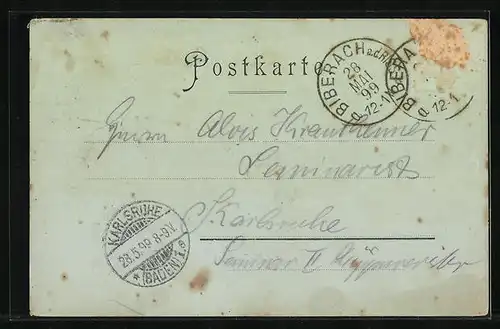 Postkarte
BIBERACH a.d. R
28
MAI
99
a. 12-1
BIBERA
a. 12-1
Herrn Alois
Seminarist
Karlsruhe
Seminar II
KARLSRUHE
28.5.99.8-9V.
(BADEN) 1.e